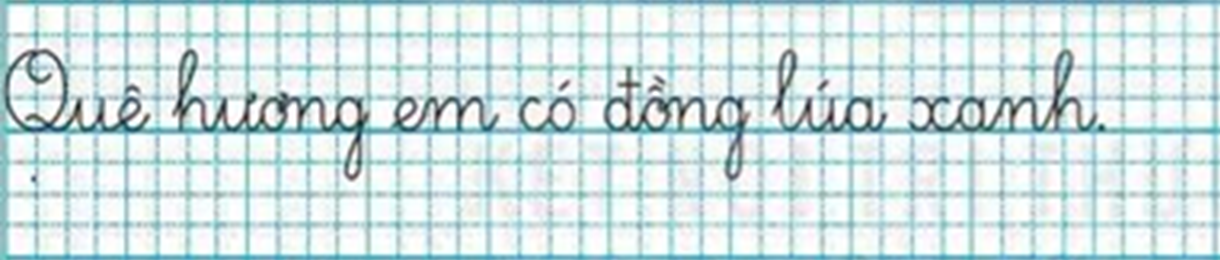 Quê hương em có đồng lúa xanh.